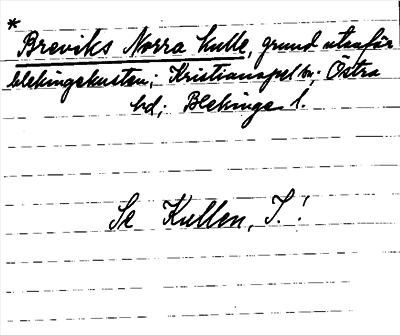 * Breviks Norra Kulle, grund utanför
blekingekusten; Kristianopel sn; Östra
hd; Blekinge l.
Se Kullen, T.!